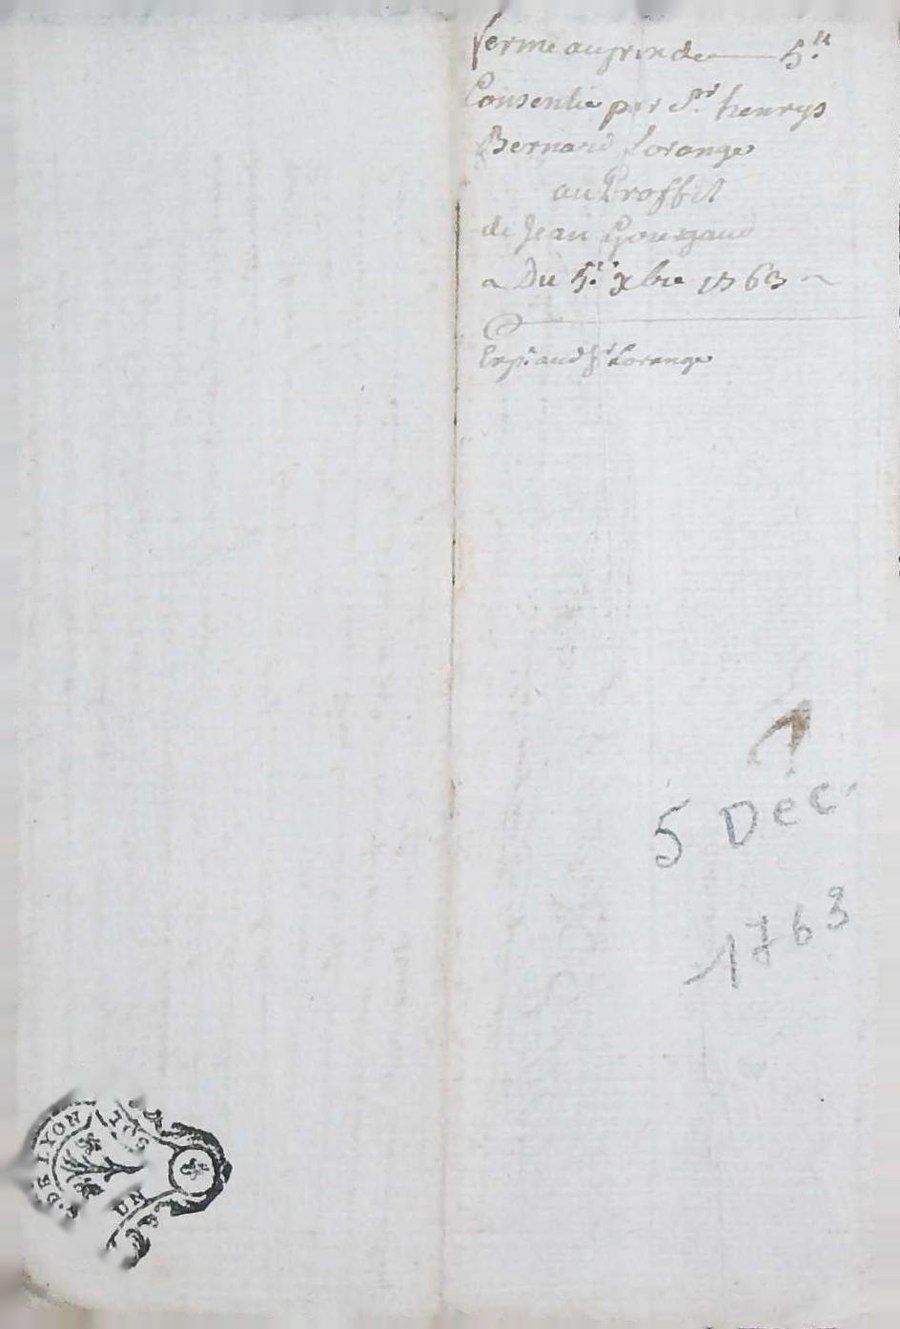 ferme au prix de — 5.ll
Consentie par S.r henrys
Bernard Lorange
au Proffit
de Jean Gourgaud
Du 5.e xbre 1763
Exp. aud. S.r Lorange
5 Dec.
1763
DE LYON
UN